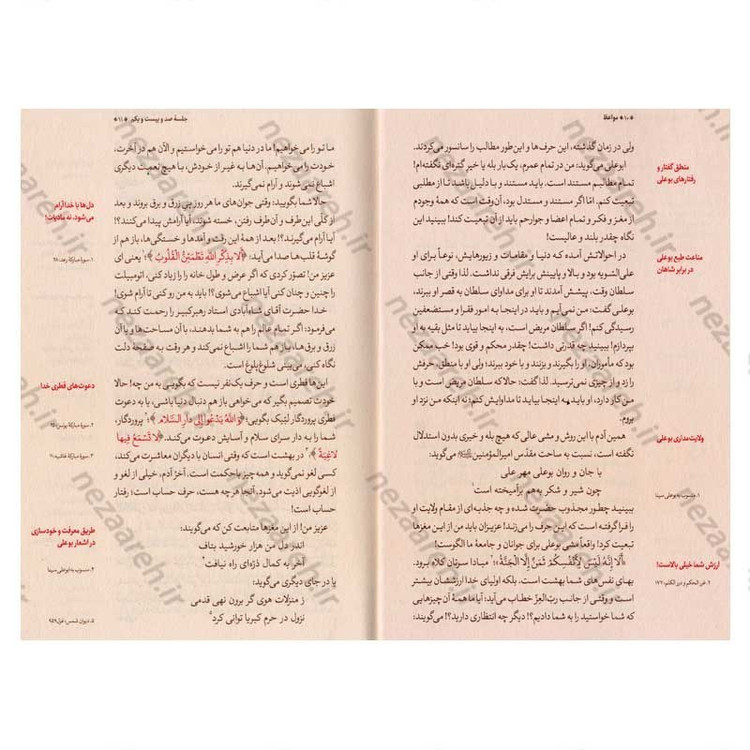 *۱۰* مواعظ
ولی در زمان گذشته، این حرف‌ها و این‌طور مطالب را سانسور می‌کردند.
منطق گفتار و
رفتارهای بوعلی
ابوعلی می‌گوید: من در تمام عمرم، یک‌بار بله یا خیرِ گتره‌ای نگفته‌ام!
تمام مطالبم مستند است. باید مستند و با دلیل باشید تا از مطلبی
تبعیت کنم. امّا اگر مستند و مستدل بود، آن‌وقت است که همهٔ وجودم
از مغز و فکر و تمام اعضا و جوارحم باید از آن تبعیت کند! ببینید این
نگاه چقدر بلند و عالیست!
مناعت طبع بوعلی
در برابر شاهان
در احوالاتش آمده که دنیا و مقامات و زیورهایش، نوعاً برای او
علی‌السّویه بود و بالا و پایینش برایش فرقی نداشت. لذا وقتی از جانب
سلطان وقت، پیشش آمدند تا او را برای مداوای سلطان به قصر او ببرند،
بوعلی گفت: من نمی‌آیم و باید در اینجا به امور فقرا و مستضعفین
رسیدگی کنم! اگر سلطان مریض است، به اینجا بیاید تا مثل بقیه به او
بپردازم! ببینید چه قدرتی داشت! چقدر محکم و قوی بود! خب ممکن
بود که مأموران، او را بگیرند و بزنند و با خود ببرند؛ ولی او با منطق، حرفش
را زد و از چیزی نمی‌ترسید. لذا گفت: حالا که سلطان مریض است و با
من کار دارد، او باید به اینجا بیاید تا مداوایش کنم؛ نه اینکه من نزد او
بروم.
ولایت‌مداری بوعلی
همین آدم با این روش و مشی عالی که هیچ بله و خیری بدون استدلال
نگفته است، نسبت به ساحت مقدّس امیرالمؤمنین می‌گوید:
با جان و روان بوعلی مهر علی
چون شیر و شکر به‌هم برآمیخته است
۱. منسوب به بوعلی سینا
ببینید چطور مجذوب حضرت شده و چه جذبه‌ای از مقام ولایت او
را فراگرفته است که این حرف را می‌زند! عزیزان باید من از این مغزها
تبعیت کرد! واقعاً مشی بوعلی برای جوانان و جامعهٔ ما الگوست!
ارزش شما خیلی بالاست!
۲. غرر الحکم و درر الکلم، ۱۷۶
«أَلَا إِنَّهُ لَیْسَ لِأَنْفُسِکُمْ ثَمَنٌ إِلَّا الْجَنَّةُ»؛ مبادا سرتان کلاه برود.
بهایِ نفس‌های شما بهشت است، بلکه اولیای خدا ارزششان بیشتر
است و وقتی از جانب ربّ‌العزّ خطاب می‌آید: آیا ما همهٔ آن چیزهایی
که شما خواستید را به شما دادیم؟! دیگر چه انتظاری دارید؟! می‌گویند:
جلسهٔ صد و بیست و یکم *۱۱*
ما تو را می‌خواهیم! ما در دنیا هم تو را می‌خواستیم و الآن هم در آخرت،
خودت را می‌خواهیم. آن‌ها به غیر از خودش، با هیچ نعمت دیگری
اشباع نمی‌شوند و آرام نمی‌گیرند.
دل‌ها با خدا آرام
می‌شود، نه مادیات!
حالا شما بگویید: وقتی جوان‌های ما هر روز پی زرق و برق بروند و بعد
از کُلّی این‌طرف و آن‌طرف رفتن، خسته شوند، آیا آرامش پیدا می‌کنند؟!
آیا آرام می‌گیرند؟! بعد از همهٔ این رفت و آمدها و خستگی‌ها، باز هم از
گوشهٔ قلب‌ها صدا می‌آید: «أَلَا بِذِکْرِ اللَّهِ تَطْمَئِنُّ الْقُلُوبُ»؛ یعنی ای
۱. سورهٔ مبارکهٔ رعد، ۲۸
عزیز من! تصوّر کردی که اگر عرض و طول خانه را را زیاد کنی، اتومبیلت
را چنین و چنان کنی آیا اشباع می‌شوی؟! باید به من رو کنی تا آرام شوی!
خدا حضرت آقای شاه‌آبادی استاد رهبر کبیر را رحمت کند که
می‌فرمود: اگر تمام عالم را هم به شما بدهند، با آن مساحت‌ها و با آن
زرق و برق‌ها، باز هم شما را اشباع نمی‌کند و هر وقت به صفحهٔ دلت
نگاه کنی، می‌بینی شلوغ‌بلوغ است.
دعوت‌های فطری خدا
این‌ها فطری است و حرف یک‌نفر نیست که بگویی به من چه! حالا
خودت تصمیم بگیر که می‌خواهی باز هم دنبال دنیا باشی، یا به دعوت
فطری پروردگار لبّیک بگویی؛ «وَاللَّهُ یَدْعُو إِلَىٰ دَارِ السَّلَامِ»؛ پروردگار،
۲. سورهٔ مبارکهٔ یونس، ۲۵
شما را به دار و سرای سلام و آسایش دعوت می‌کند. «لَا تَسْمَعُ فِیهَا
لَاغِیَةً»، در بهشت است که وقتی انسان با دیگران معاشرت می‌کند،
۳. سورهٔ مبارکهٔ غاشیه، ۱۱
کسی لغو نمی‌گوید و همه‌چیز باحکمت است. آخر آدم، خیلی از لغو و
از لغوگویی اذیت می‌شود. آنجا هرچه هست، حرف حساب است؛ رفتار
حساب است!
طریق معرفت و خودسازی
در اشعار بوعلی
عزیز من! از این مغزها متابعت کن که می‌گویند:
اندر دل من هزار خورشید بتافت
آخر به کمال ذرّه‌ای راه نیافت
۴. منسوب به بوعلی سینا
یا در جای دیگری می‌گوید:
ز منزلات هوی گر برون نهی قدمی
نزول در حرم کبریا توانی کرد
۵. دیوان شمس، غزل ۹۵۹
nezaareh.ir